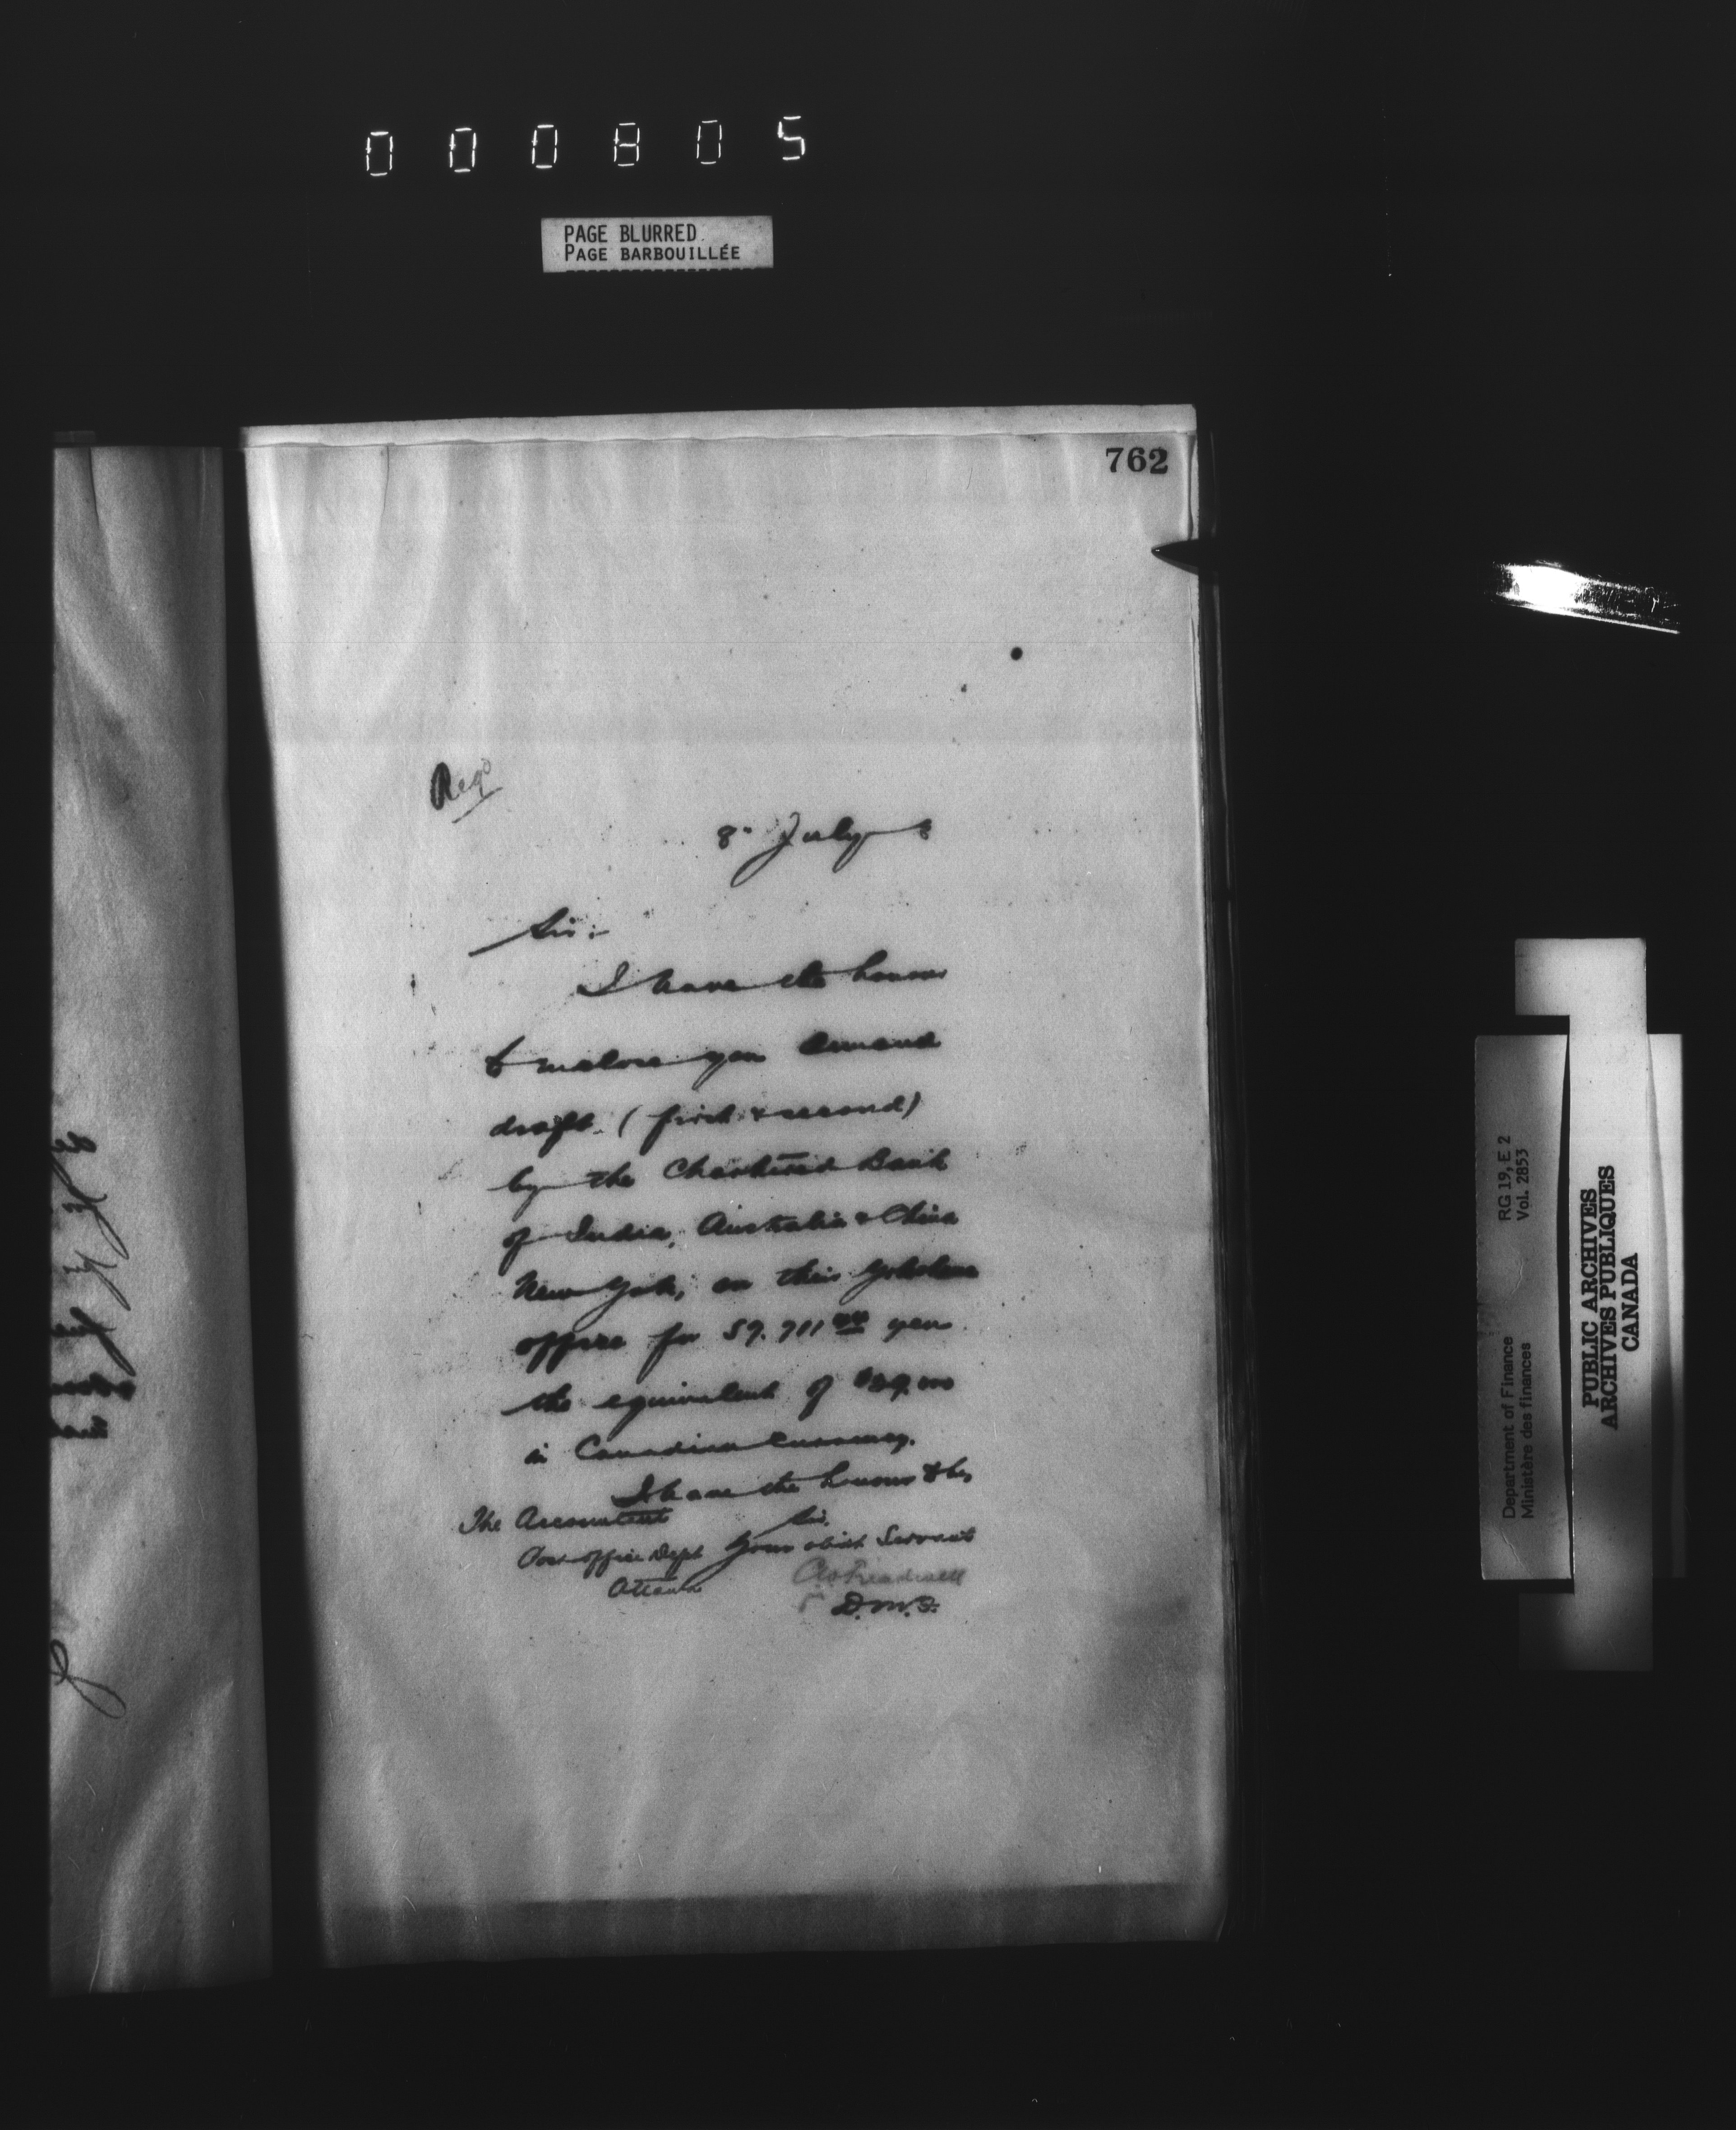 000805
PAGE BLURRED
PAGE BARBOUILLÉE
762
Regd
8 July 8
Sir:
I have the honour
to enclose you demand
draft (first & second)
by the Chartered Bank
of India, Australia & China
New York, on their Yokohama
office for 59,711 yen
the equivalent of
in Canadian currency.
I have the honour to be,
Sir,
The Accountant
Post office Dept Your obdt Servant
Ottawa
D.M.F.
RG 19, E 2
Vol. 2853
Department of Finance
Ministère des finances
PUBLIC ARCHIVES
ARCHIVES PUBLIQUES
CANADA